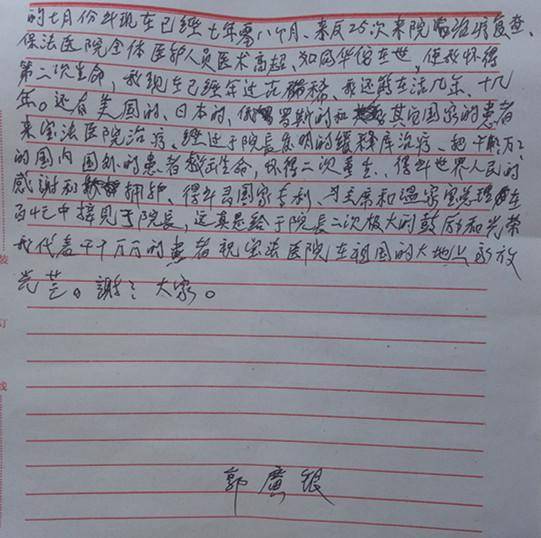 的七月份到现在已经七年零八个月、来反25次来院治疗复查、
保法医院全体医护人员医术高超、如同华佗在世、使我怀得
第二次生命，我现在已经年过花稀、我还能在活几年、十几
年。还有美国的、日本的、俄罗斯的和其它国家的患者
来宝法医院治疗、经过于院长发明的缓释库治疗、把千万
的国内国外的患者性命、怀得二次重生、得到世界人民的
感谢和拥护、得到国家专利、主席和温家宝总理在
百忙中接见于院长，这真是给于院长二次极大的鼓励和光荣
我代表千千万万的患者祝宝法医院在祖国的大地上永放
光芒。謝：大家。
装
订
线
郭廣银